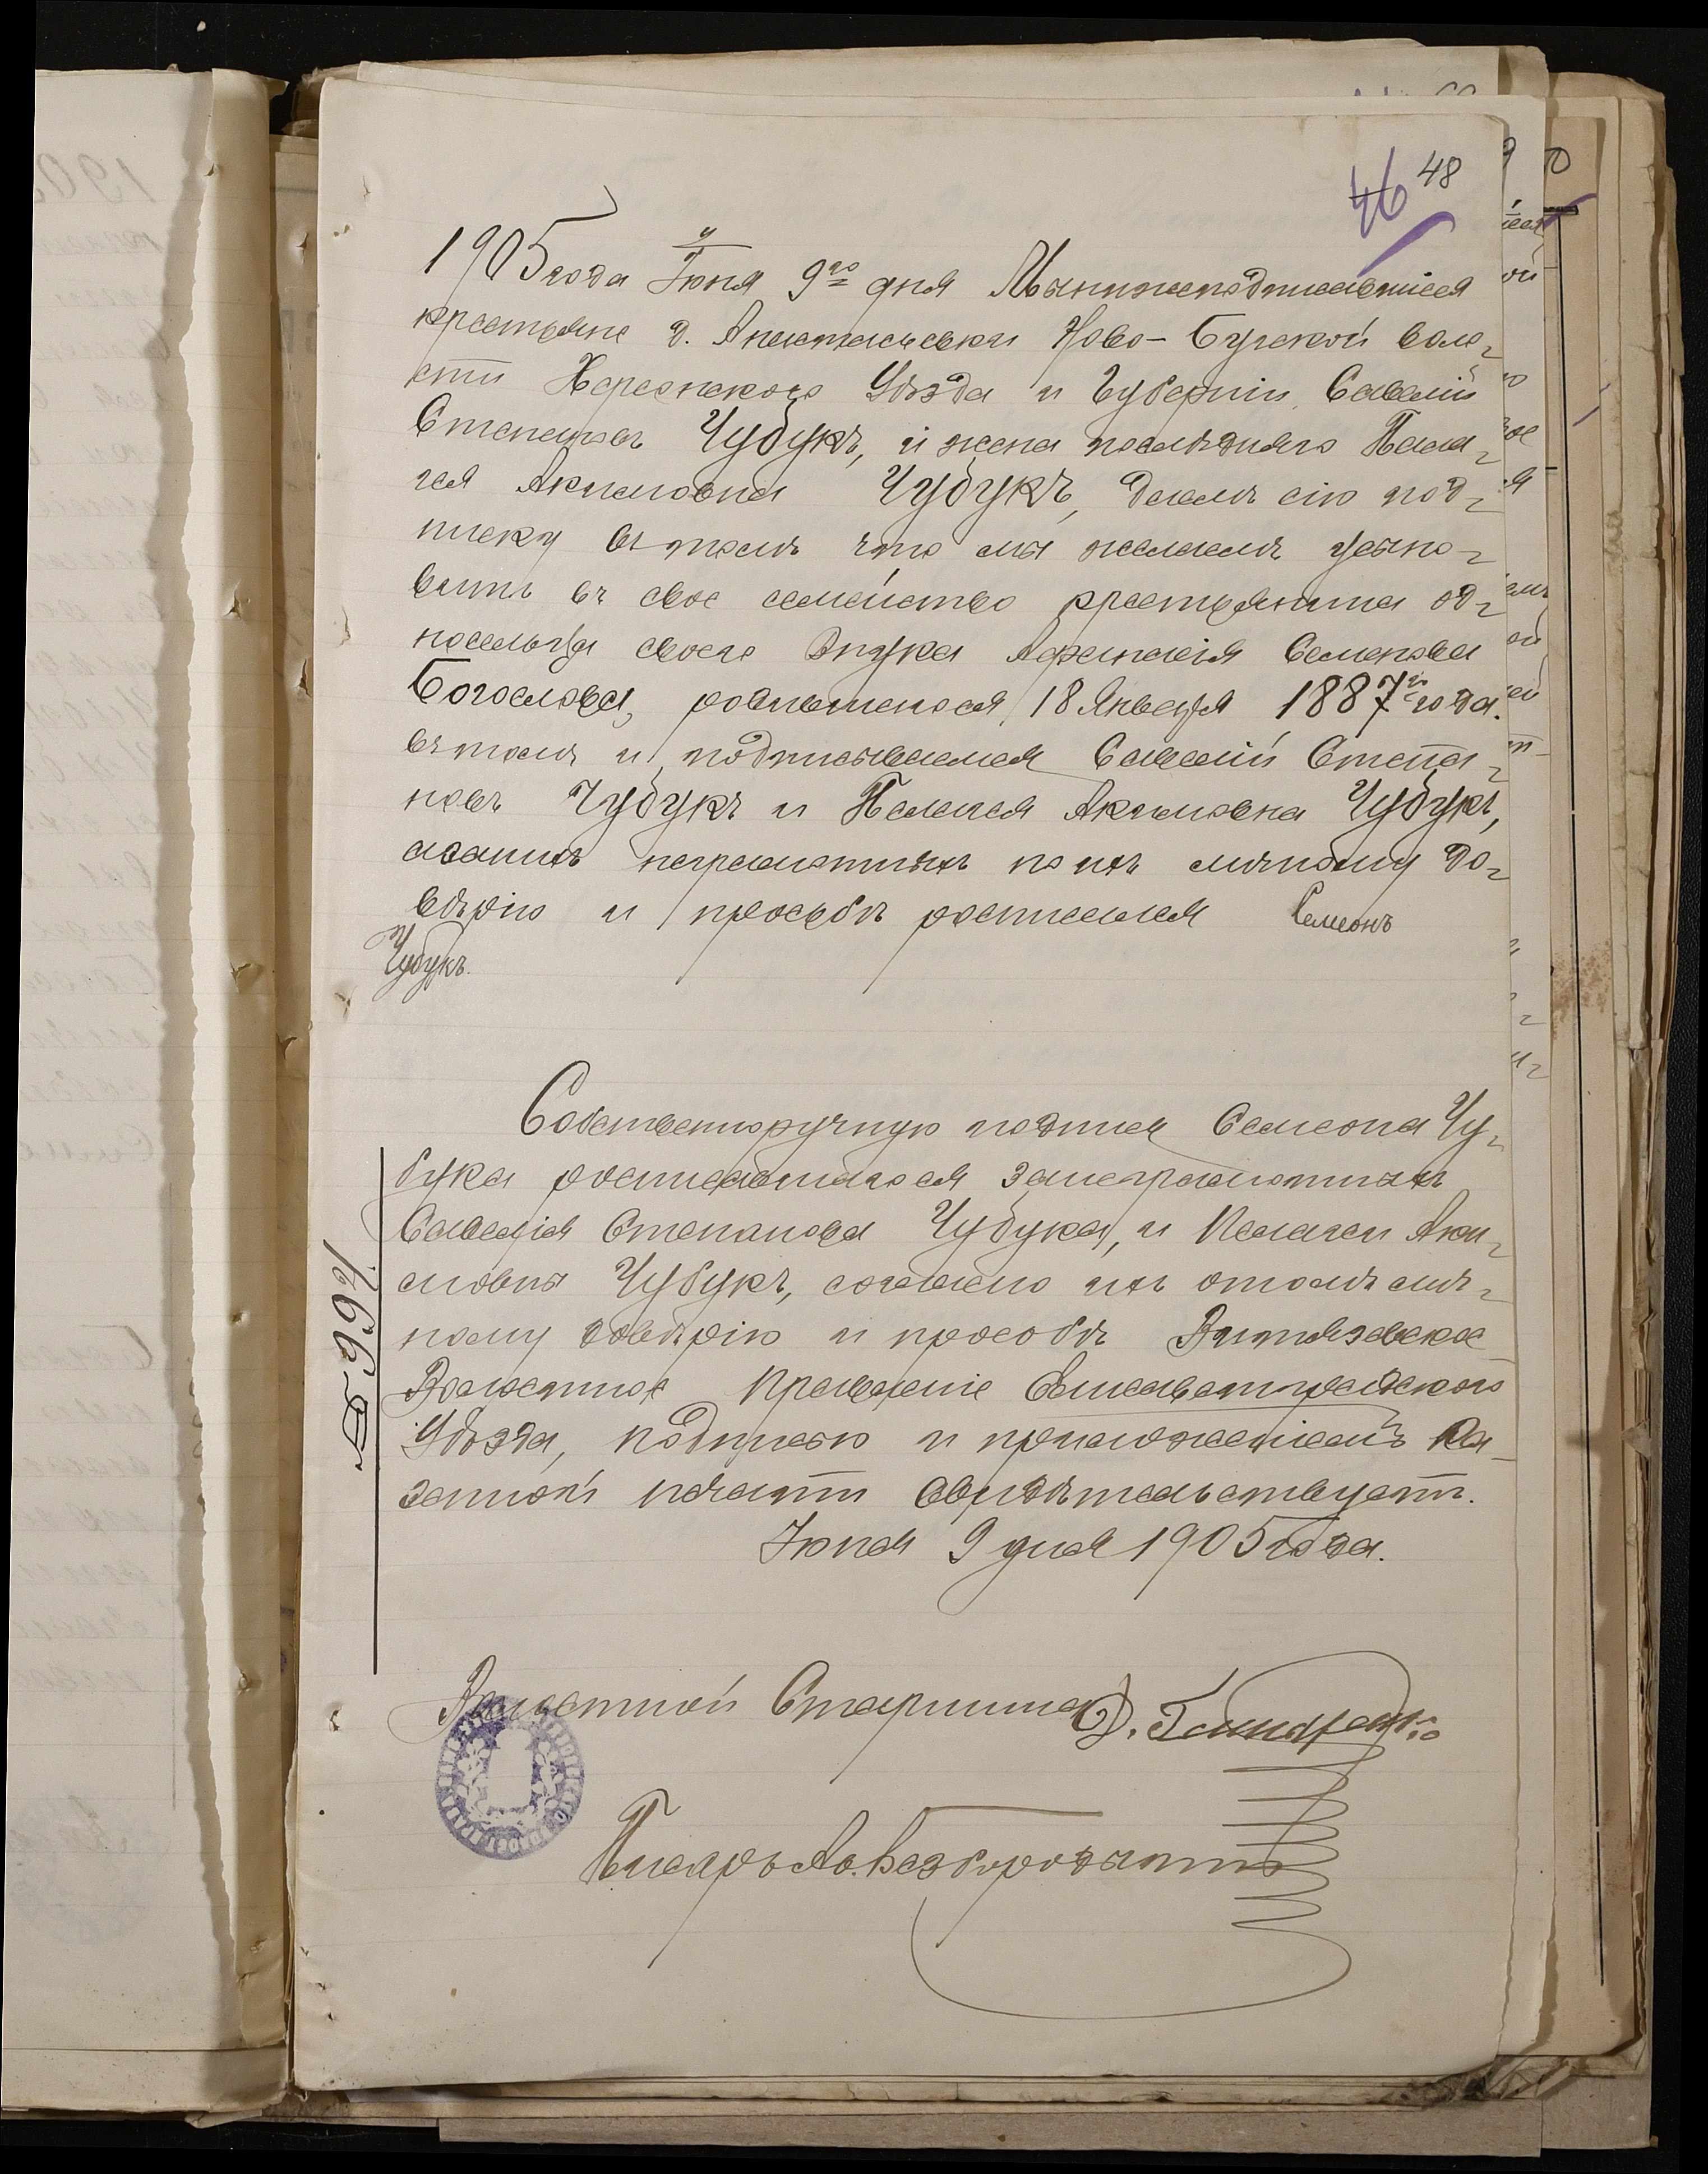 46 48
1905 года Іюня 9го дня Мынижеподписавшіеся
крестьяне д. Анастасьевки Ново-Бугской воло-
сти Херсонскаго Уѣзда и Губерніи, Савелій
Степановъ Чубукъ, и жена послѣдняго Пела-
гея Акимовна Чубукъ, даемъ сію под-
писку въ томъ что мы желаемъ усыно-
вить въ свое семейство крестьянина од-
носельца своего внука Афанасія Семенова
Богослова, родившегося 18 Января 1887го года.
въ томъ и подписываемся Савелій Степа-
новъ Чубукъ и Пелагея Акимовна Чубукъ,
а за нихъ неграмотныхъ по ихъ личному до-
вѣрію и просьбѣ росписался Семонъ
Чубукъ.
Собственноручную подпись Семона Чу-
бука росписавшагося за неграмотныхъ
Савелія Степанова Чубука, и Пелагеи Аки-
мовны Чубукъ, согласно ихъ о томъ лич-
ному довѣрію и просьбѣ Витязевское
Волостное Правленіе Елисаветградскаго
Уѣзда, подписью и приложеніемъ ка-
зенной печати свидѣтельствуетъ.
Іюня 9 дня 1905 года.
№ 992
Волостной Старшина
Писарь Ав. Безбородько